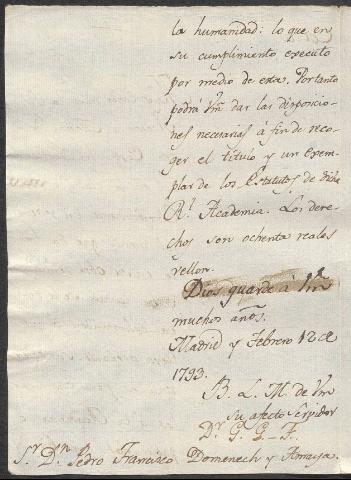 la humanidad: lo que en
su cumplimiento executo
por medio de esta. Portanto
podrá Vm dar las disposicio-
nes necesarias á fin de reco-
ger el titulo y un exem-
plar de los Estatutos de dicha
Rl. Academia. Los dere-
chos son ochenta reales
vellon.
Dios guarde á Vm
muchos años.
Madrid y Febrero 12 de
1793.
B. L. M. de Vm
su afecto Servidor
Dr. G. G. F.
Sr. Dn. Pedro Francisco Domenech y Amaya.